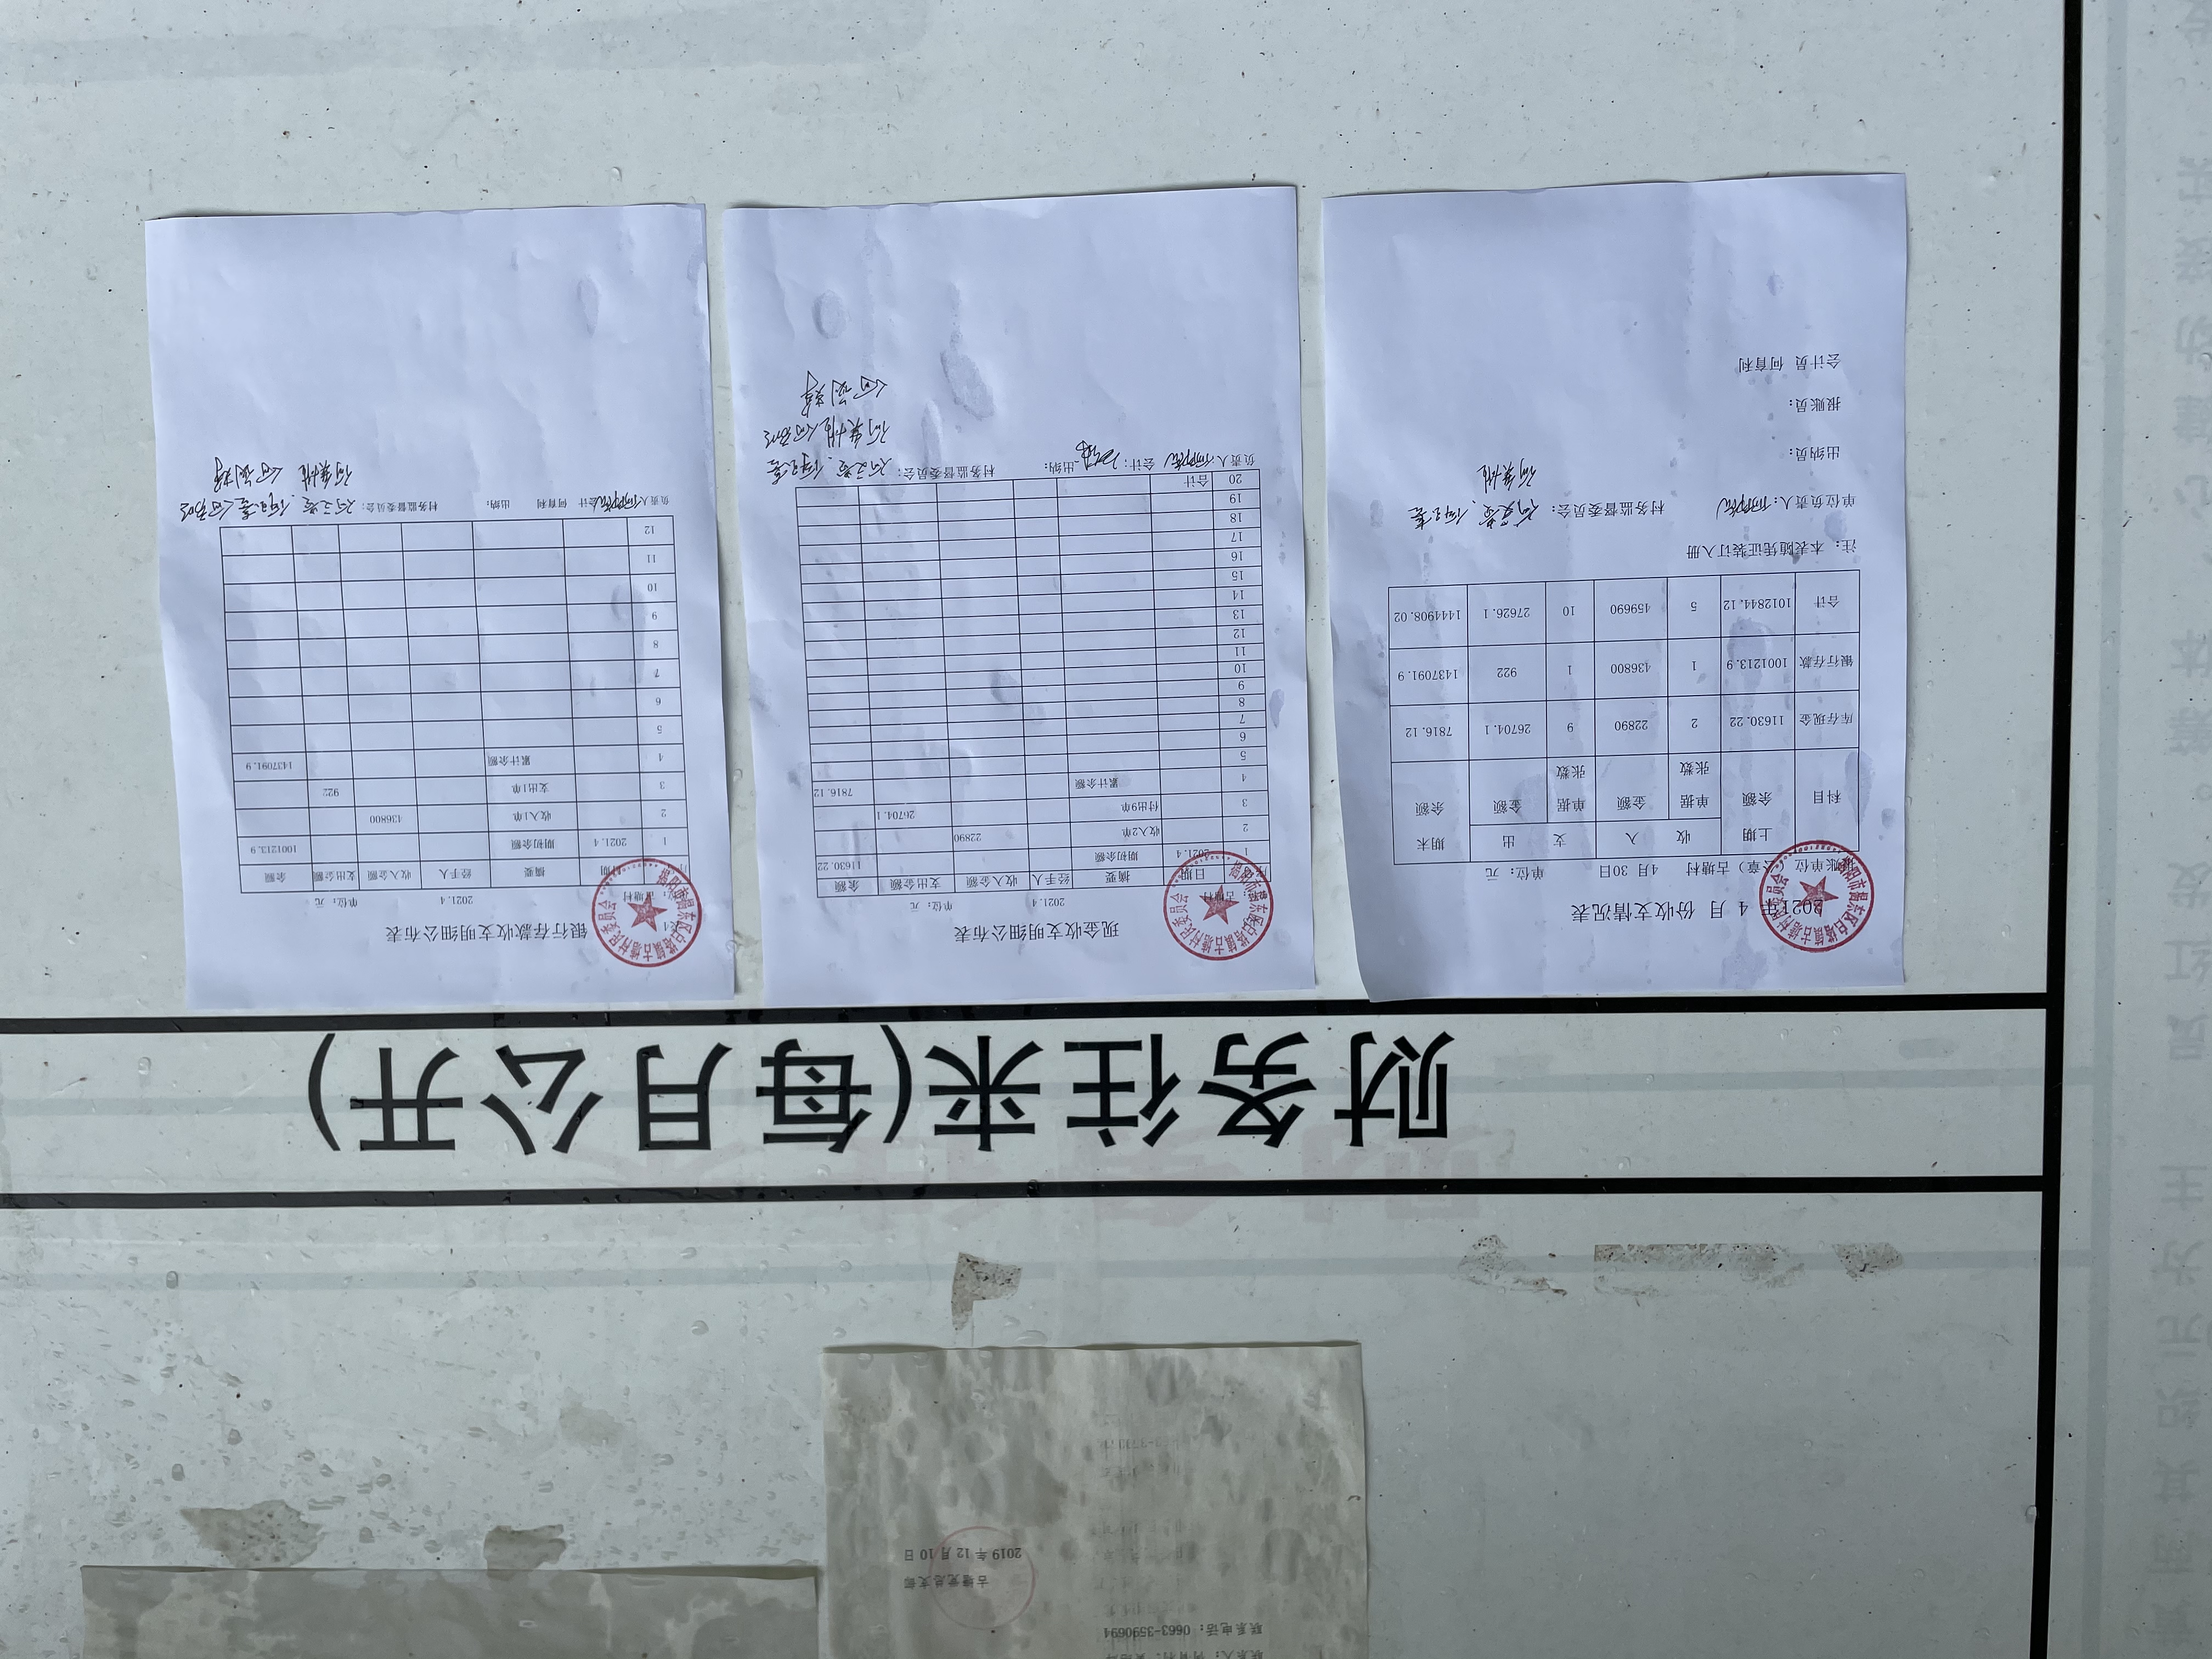 财务往来(每月公开)
2021年 4 月 份收支情况表
报账单位（公章）古塘村 4月30日 单位：元
科目 上期余额 收入 支出 期末余额
单据张数 金额 单据张数 金额
库存现金 11630.22 2 22890 9 26704.1 7816.12
银行存款 1001213.9 1 436800 1 922 1437091.9
合计 1012844.12 5 459690 10 27626.1 1444908.02
注：本表随凭证装订入册
单位负责人： 村务监督委员会：
出纳员：
报账员：
会计员 何育利
揭阳市揭东区白塔镇古塘村民委员会
现金收支明细公布表
古塘村 2021.4 单位：元
日期 摘要 经手人 收入金额 支出金额 余额
1 2021.4 期初余额 11630.22
2 收入2单 22890
3 付出9单 26704.1
4 累计余额 7816.12
5
6
7
8
9
10
11
12
13
14
15
16
17
18
19
20 合计
负责人： 会计： 出纳： 村务监督委员会：
揭阳市揭东区白塔镇古塘村民委员会
银行存款收支明细公布表
古塘村 2021.4 单位：元
日期 摘要 经手人 收入金额 支出金额 余额
1 2021.4 期初余额 1001213.9
2 收入1单 436800
3 支出1单 922
4 累计余额 1437091.9
5
6
7
8
9
10
11
12
负责人： 会计 何育利 出纳： 村务监督委员会：
揭阳市揭东区白塔镇古塘村民委员会
联系电话：0663-3590694
古塘党总支部
2019 年 12 月 10 日